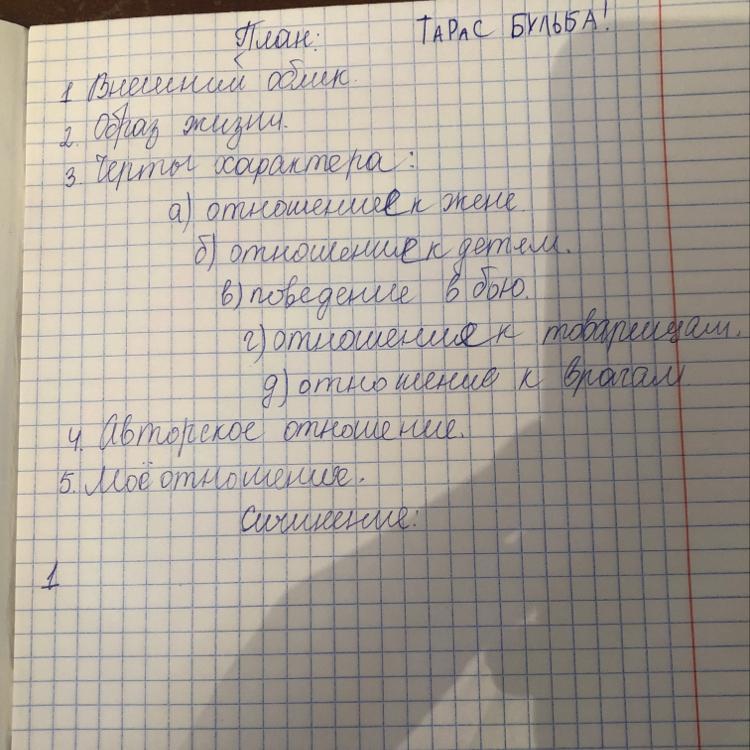 План: ТАРАС БУЛЬБА!
1 Внешний облик.
2. Образ жизни.
3. Черты характера:
а) отношение к жене.
б) отношение к детям.
в) поведение в бою.
г) отношение к товарищам.
д) отношение к врагам
4. Авторское отношение.
5. Моё отношение.
Сичинение:
1